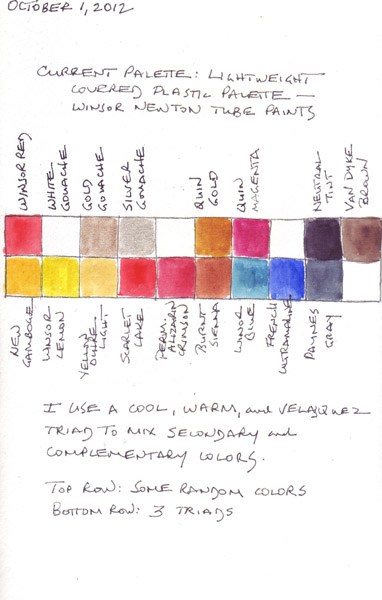 OCTOBER 1, 2012
CURRENT PALETTE: LIGHTWEIGHT
COVERED PLASTIC PALETTE —
WINSOR NEWTON TUBE PAINTS
WINSOR RED
WHITE GOUACHE
GOLD GOUACHE
SILVER GOUACHE
QUIN GOLD
QUIN MAGENTA
NEUTRAL TINT
VAN DYKE BROWN
NEW GAMBOGE
WINSOR LEMON
YELLOW OCHRE LIGHT
SCARLET LAKE
PERM. ALIZARIN CRIMSON
BURNT SIENNA
WINSOR BLUE
FRENCH ULTRAMARINE
PAYNES GRAY
I USE A COOL, WARM, and VELASQUEZ
TRIAD TO MIX SECONDARY and
COMPLEMENTARY COLORS.
TOP ROW: SOME RANDOM COLORS
BOTTOM ROW: 3 TRIADS